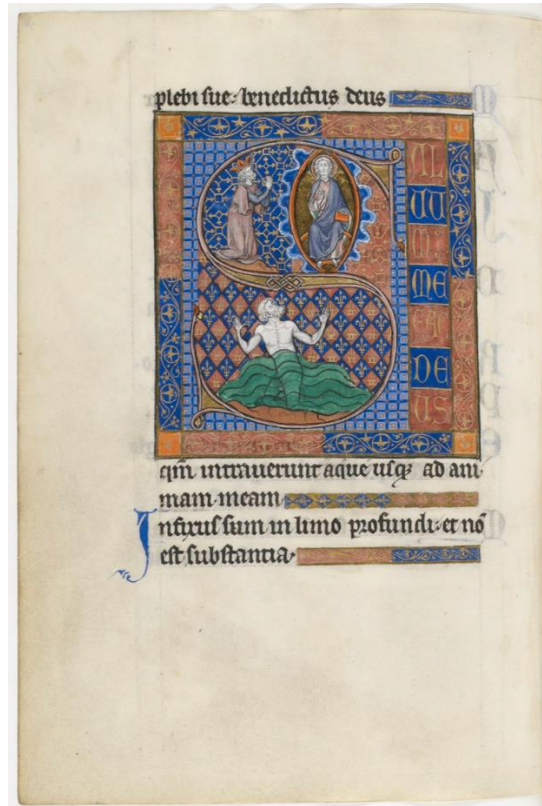 plebi sue: benedictus deus
S
AL
UU
M
ME
FAC
DE
US
qm̄ intrauerunt aque usqꝫ ad ani
mam meam
Infixus sum in limo profundi: et nō
est substantia.